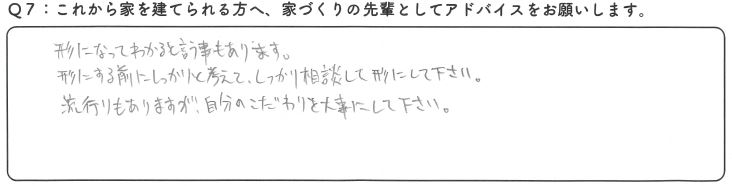 Q7：これから家を建てられる方へ、家づくりの先輩としてアドバイスをお願いします。
形になってわかると言う事もあります。
形にする前にしっかりと考えて、しっかり相談して形にして下さい。
流行りもありますが、自分のこだわりを大事にして下さい。